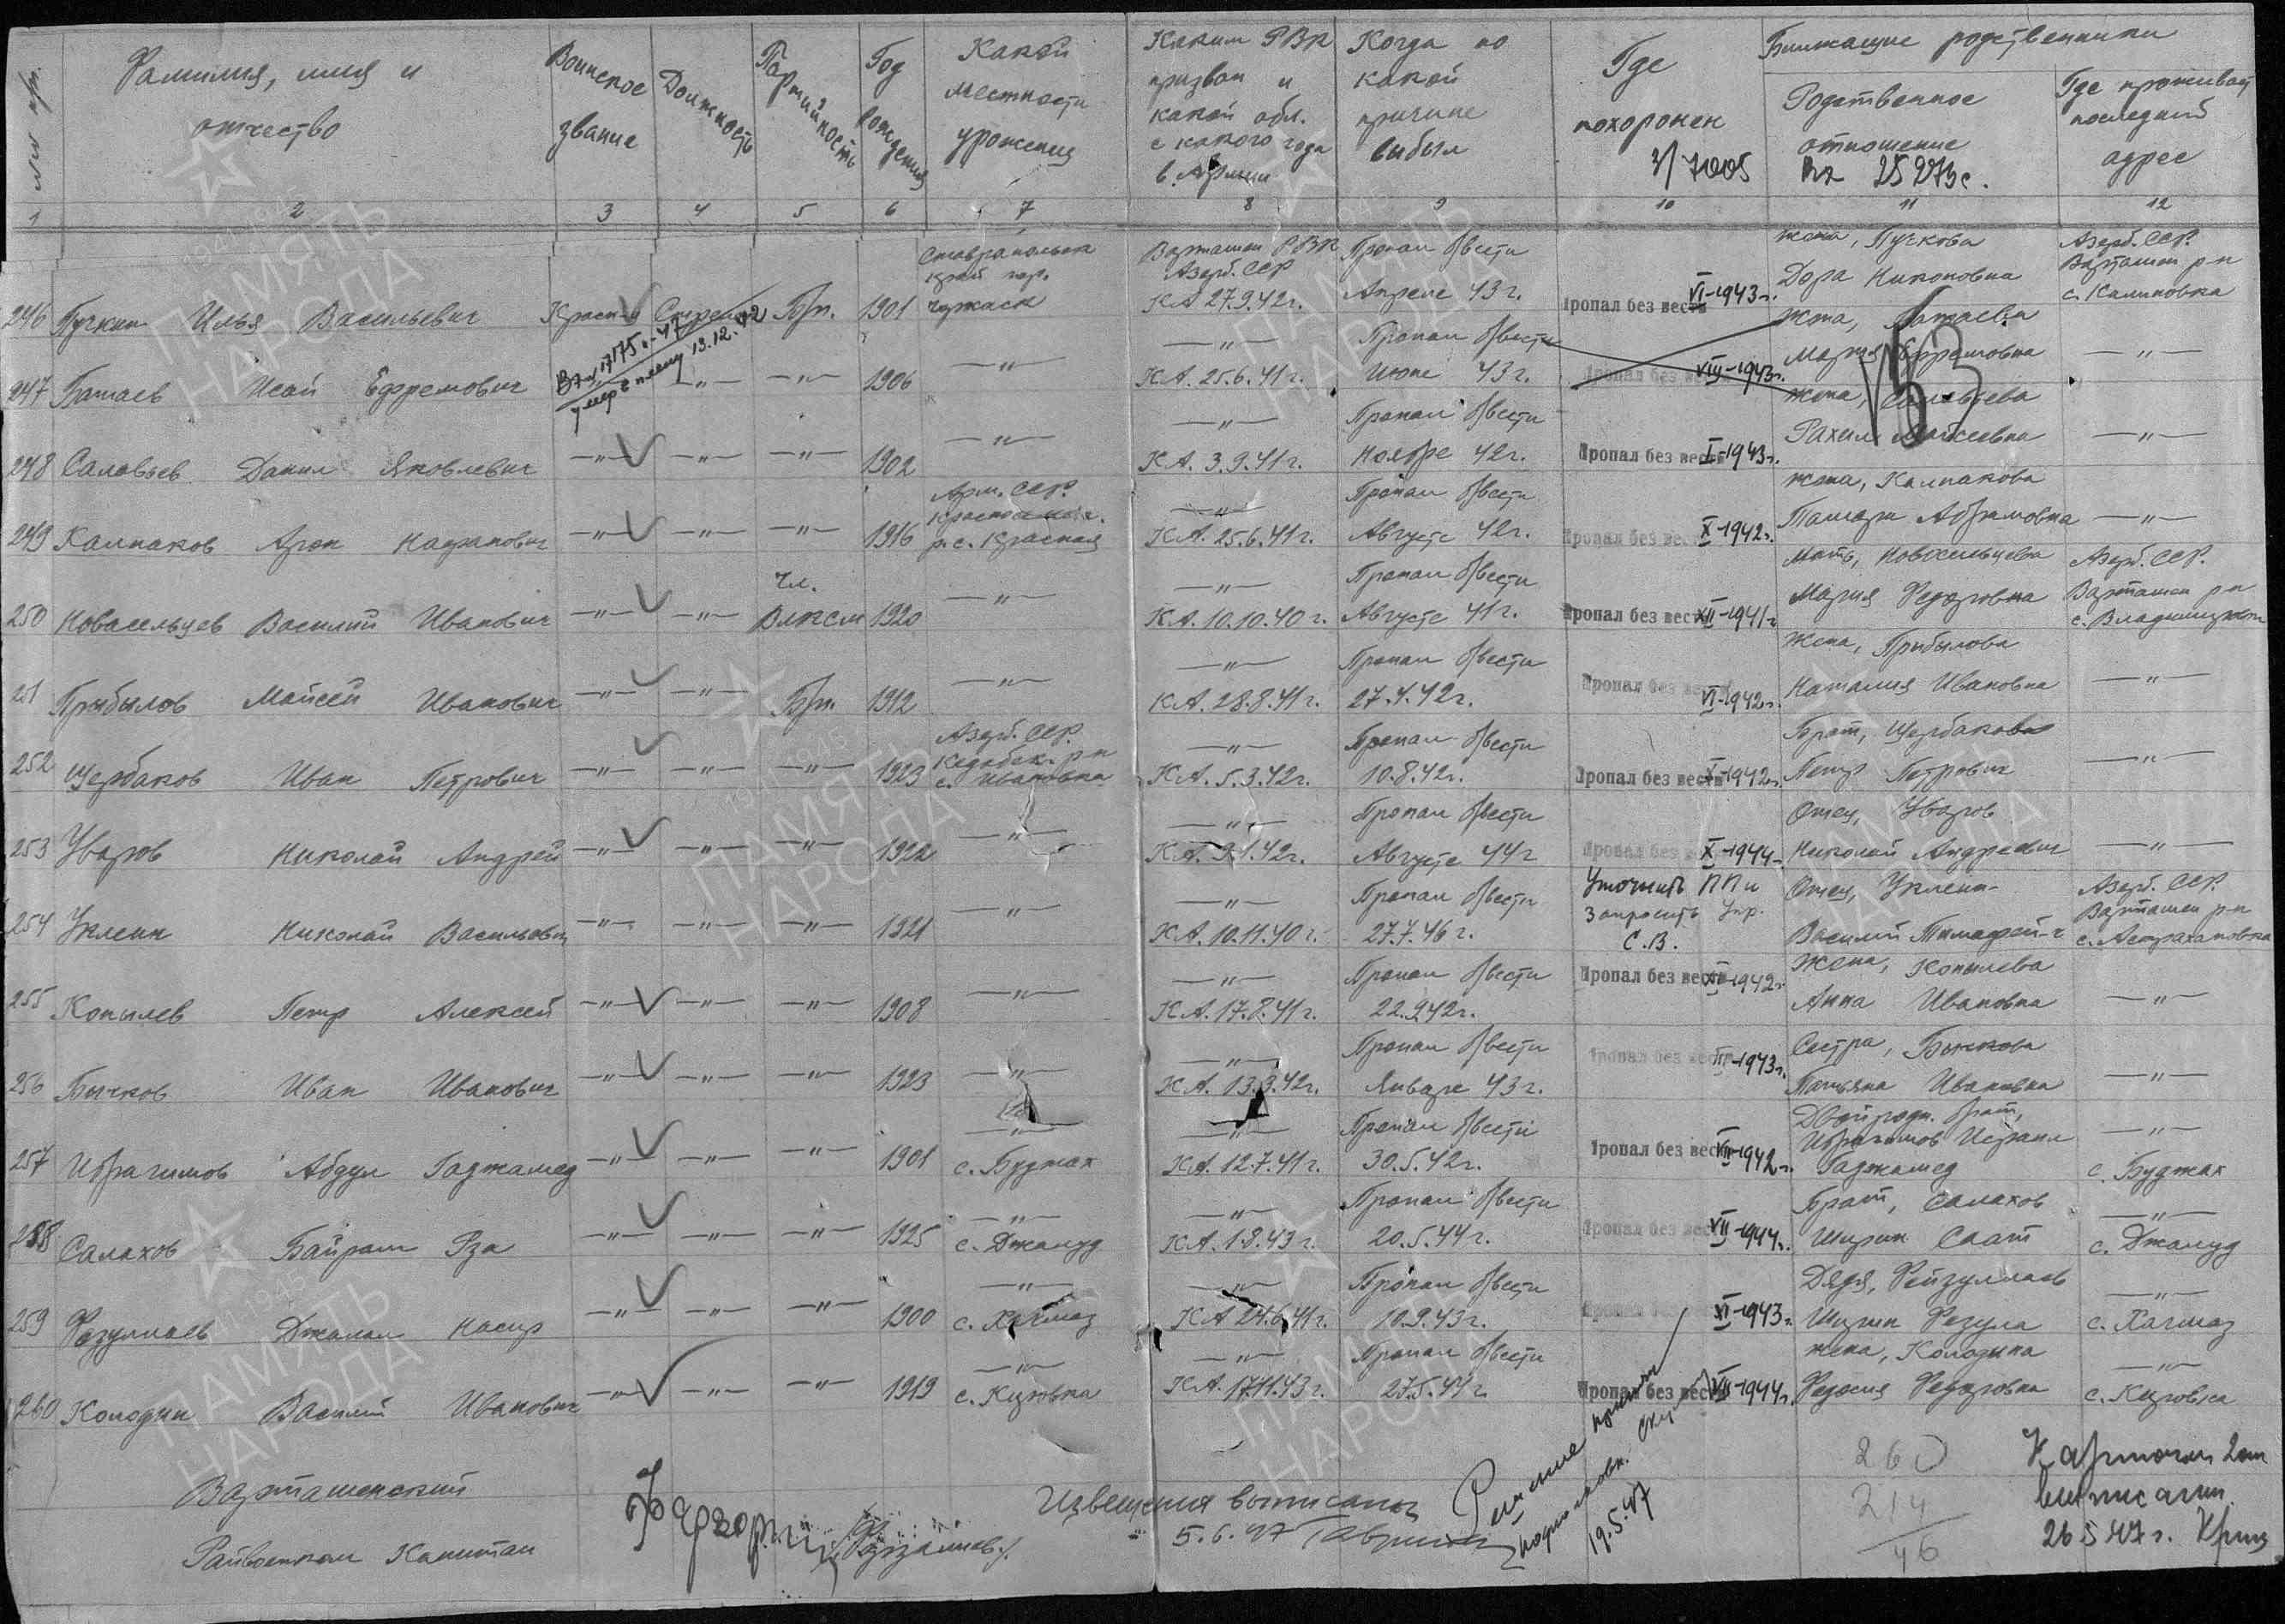 №№ п/п.
Фамилия, имя и отчество
Воинское звание
Должность
Партийность
Год рождения
Какой местности уроженец
Каким РВК призван и какой обл. с какого года в Армии
Когда по какой причине выбыл
Где похоронен
Ближащие родственники
Родственное отношение
Где проживает последний адрес
з/7005 Вх 25273с.
1 2 3 4 5 6 7 8 9 10 11 12
246 Пучкин Илья Васильевич Красн-ц Б/п. 1901 край гор. Варташен РВК Азерб. ССР КА 27.9.42г. Пропал б/вести Апреле 43г. Пропал без вести VI-1943г. жена, Пучкова Дора Никоновна Азерб. ССР. Варташен р-н с. Калиновка
Вх 17175с-47 умер в плену 13.12.42
247 Батаев Исай Ефремович —"— —"— 1906 —"— —"— КА. 25.6.41г. Пропал б/вести Июне 43г. Пропал без вести VIII-1943г. жена, Батаева Мария Ефремовна —"—
248 Саловьев Данил Яковлевич —"— —"— —"— 1902 —"— —"— КА. 3.9.41г. Пропал б/вести Ноябре 42г. Пропал без вести I-1943г. жена, Саловьева Рахиль Мойсеевна —"—
249 Калпаков Арон —"— —"— —"— 1916 Арм. ССР. р. с. Красная —"— КА. 25.6.41г. Пропал б/вести Августе 42г. Пропал без вести X-1942г. жена, Калпакова Тамара Абрамовна —"—
250 Новасельцев Василий Иванович —"— —"— чл. ВЛКСМ 1920 —"— —"— КА. 10.10.40г. Пропал б/вести Августе 41г. Пропал без вести XII-1941г мать, Новосельцева Мария Федоровна Азерб. ССР. Варташен р-н
251 Прибылов Мойсей Иванович —"— —"— Б/п. 1912 —"— —"— КА. 28.8.41г. Пропал б/вести 27.4.42г. Пропал без вести VI-1942г. Жена, Прибылова Наталия Ивановна —"—
252 Щербаков Иван Петрович —"— —"— —"— 1923 Азерб. ССР. Кедабек. р-н с. Ивановка —"— КА. 5.3.42г. Пропал б/вести 10.8.42г. Пропал без вести X-1942г. Брат, Щербаков Петр Петрович —"—
253 Уваров Николай Андрей —"— —"— —"— 1922 —"— —"— КА. 9.1.42г. Пропал б/вести Августе 44г Пропал без вести X-1944г. Отец, Уваров Николай Андреевич —"—
254 Уклеин Николай Васильевич —"— —"— —"— 1921 —"— —"— КА. 10.11.40г. Пропал б/вести 27.7.46г. Уточнить ПП и Запросить Упр. С.В. Отец, Уклеин- Василий Тимафей-ч Азерб. ССР. Варташен р-н с. Астрахановка
255 Копылев Петр Алексей —"— —"— —"— 1908 —"— —"— КА. 17.8.41г. Пропал б/вести 22.9.42г. Пропал без вести XI-1942г Жена, Копылева Анна Ивановна —"—
256 Бычков Иван Иванович —"— —"— —"— 1923 —"— —"— КА. 13.3.42г. Пропал б/вести Январе 43г. Пропал без вести III-1943г. Сестра, Бычкова Татьяна Ивановна —"—
257 Ибрагимов Абдул Гаджамед —"— —"— —"— 1901 —"— с. Буджак —"— КА. 12.7.41г. Пропал б/вести 30.5.42г. Пропал без вести VII-1942г. Двоюродн. брат, Ибрагимов Исраил Гаджамед —"— с. Буджак
258 Салахов Байрам Рза —"— —"— —"— 1925 —"— с. Джалуд —"— КА. 1.8.43г. Пропал б/вести 20.5.44г. Пропал без вести VII-1944г. Брат, Салахов Ширин Саат —"— с. Джалуд
259 Фезуллаев Джалал Насир —"— —"— —"— 1900 —"— с. Хачмаз —"— КА 24.6.41г. Пропал б/вести 10.9.43г. XI-1943г. Дядя, Фейзуллаев Ширин Фезула —"— с. Хачмаз
260 Колодин Василий Иванович —"— —"— —"— 1919 —"— с. Кировка —"— КА. 17.11.43г. Пропал б/вести 27.5.44г. Пропал без вести VII-1944г. жена, Колодина Федосия Федоровна —"— с. Кировка
Варташенский
Райвоенком Капитан
Извещения выписаны
5.6.47
Решение принял
подполковн.
19.5.47
260
214
46
Карточки
выписаны
26 5 47г.
ПАМЯТЬ НАРОДА
1941-1945